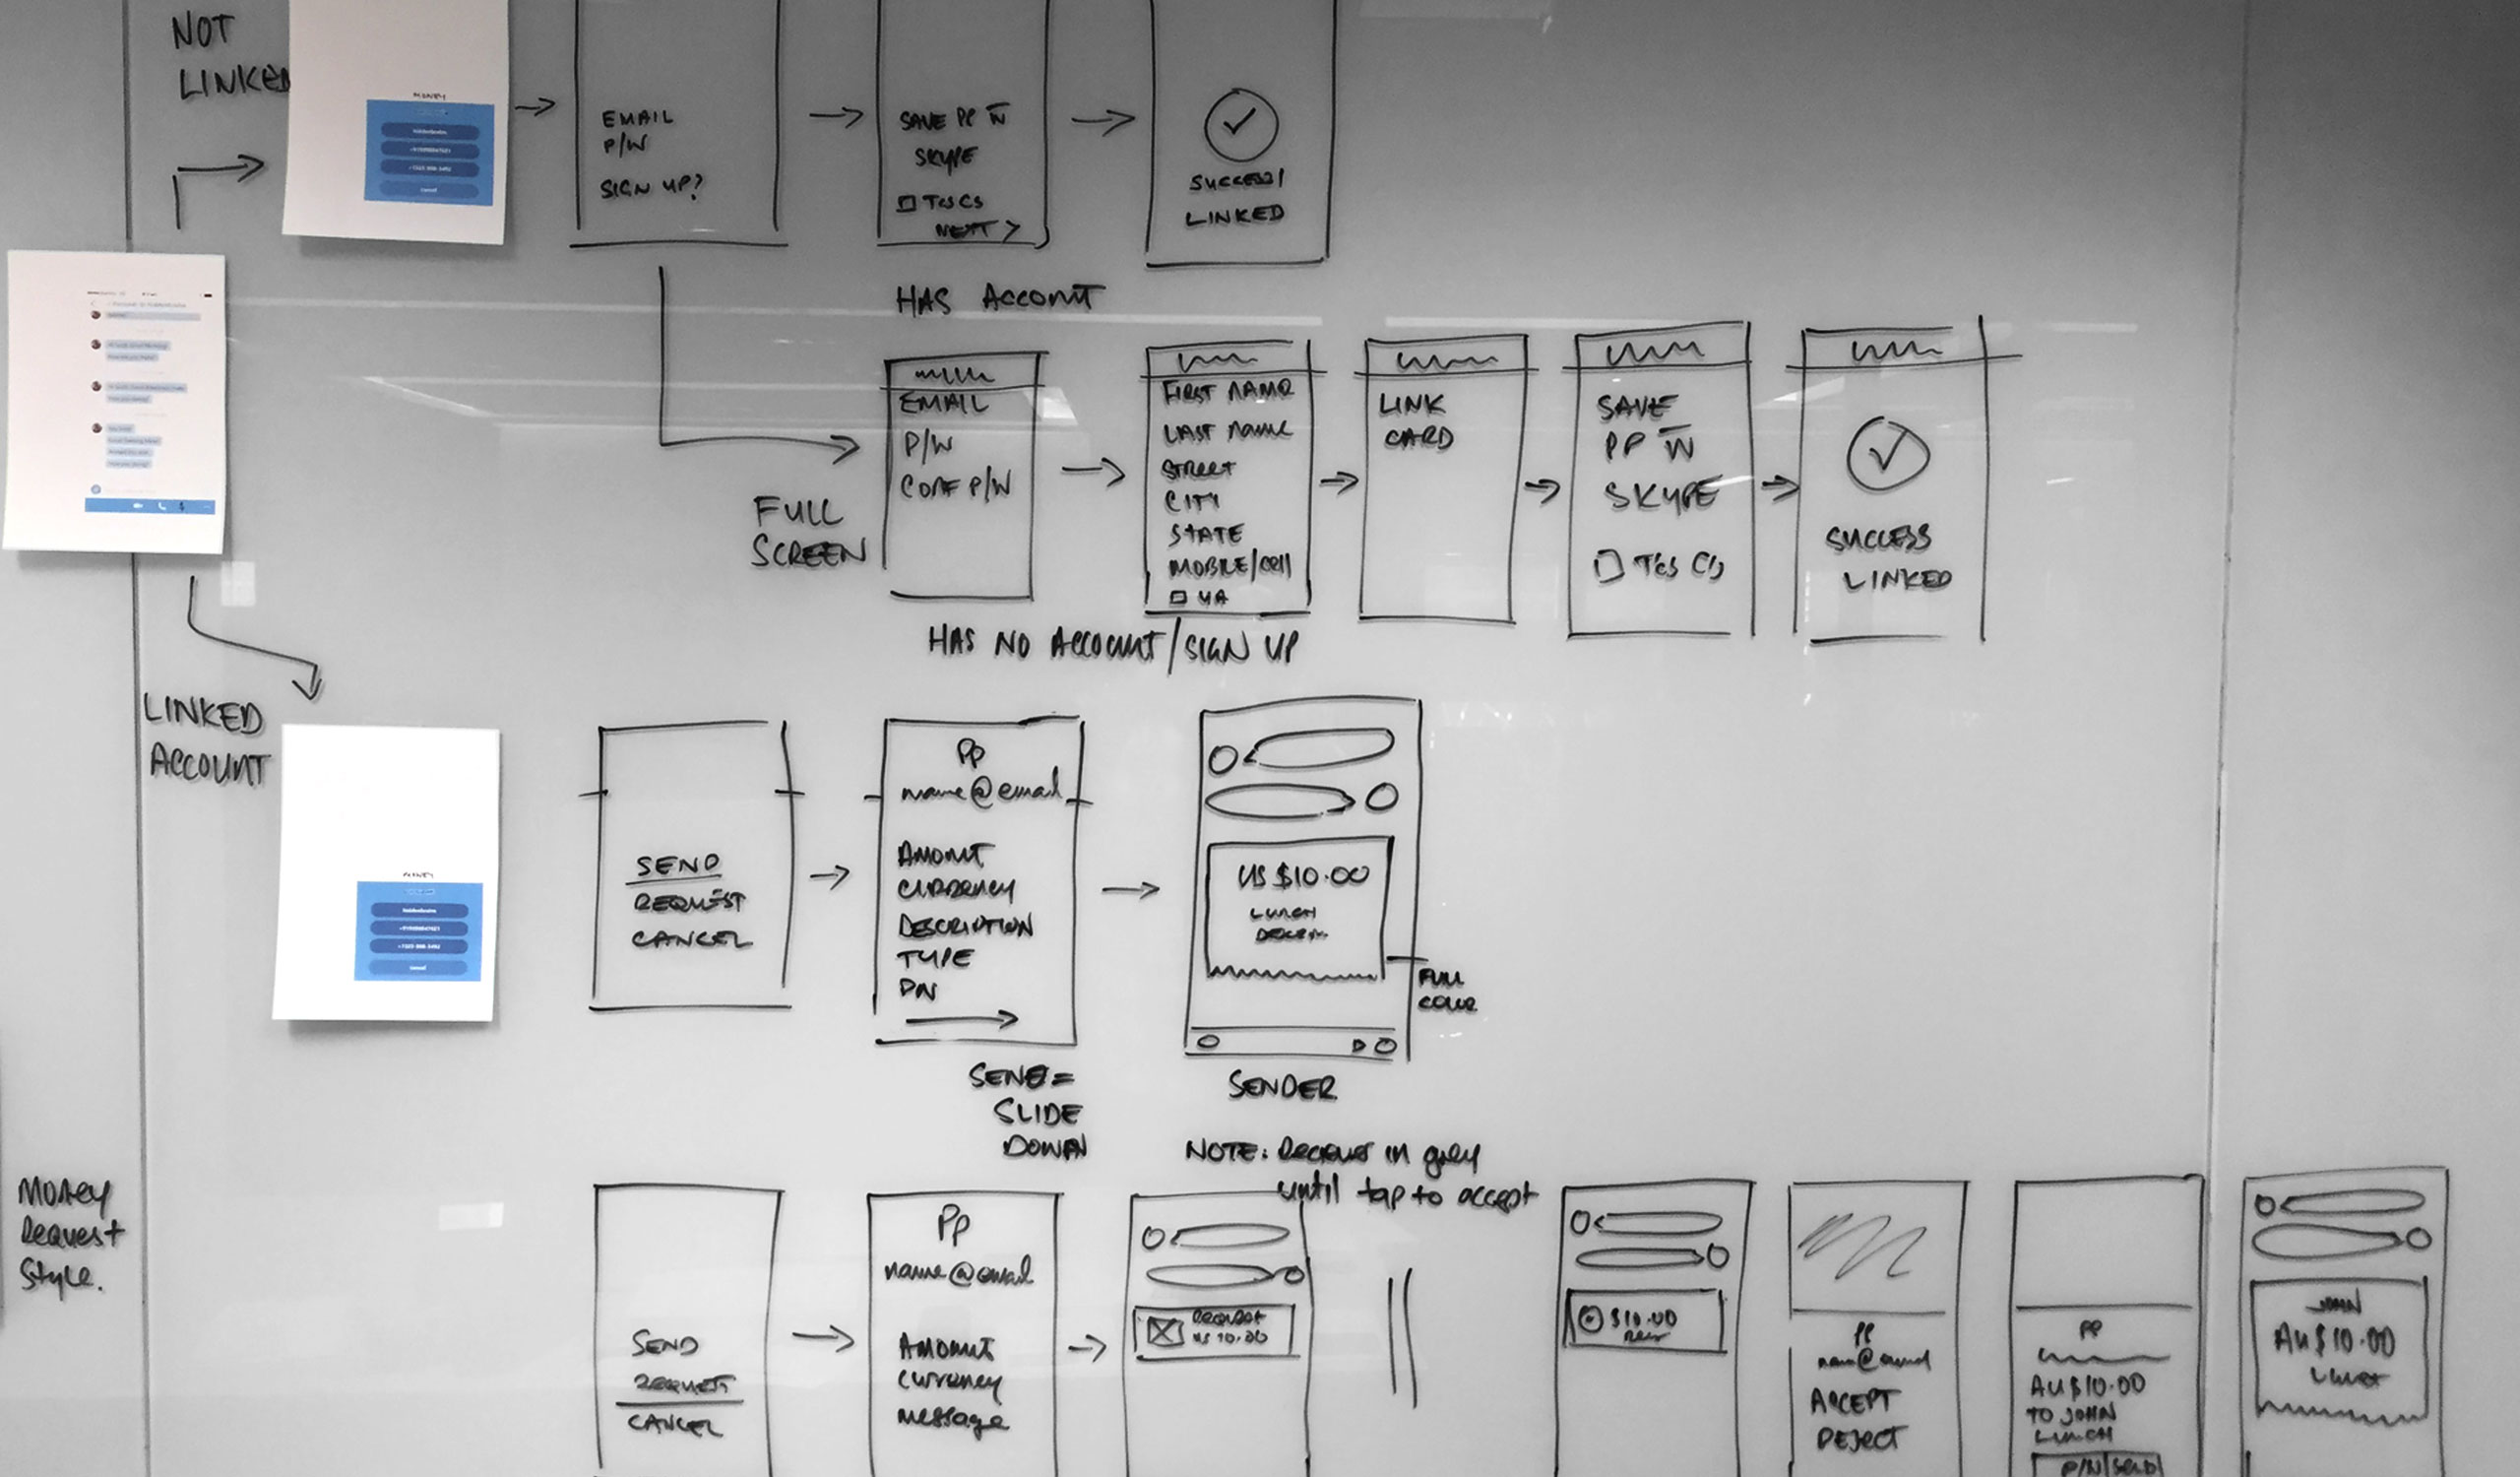 NOT
LINKED
MONEY
EMAIL
P/W
SIGN UP?
SAVE PP W
SKYPE
TCs Cs
NEXT >
SUCCESS!
LINKED
HAS ACCOUNT
FULL
SCREEN
EMAIL
P/W
CONF P/W
FIRST NAME
LAST NAME
STREET
CITY
STATE
MOBILE/CELL
UA
LINK
CARD
SAVE
PP W
SKYPE
TCs Cs
SUCCESS
LINKED
HAS NO ACCOUNT/SIGN UP
LINKED
ACCOUNT
MONEY
SEND
REQUEST
CANCEL
PP
name@email
AMOUNT
CURRENCY
DESCRIPTION
TYPE
US $10.00
LUNCH
FULL
SEND =
SLIDE
DOWN
SENDER
NOTE:
in grey
until tap to accept
Money
Request
Style.
SEND
REQUEST
CANCEL
PP
name@email
AMOUNT
Currency
message
REQUEST
US 10.00
$10.00
PP
name@email
ACCEPT
REJECT
PP
AU$10.00
TO JOHN
LUNCH
JOHN
AU$10.00
LUNCH